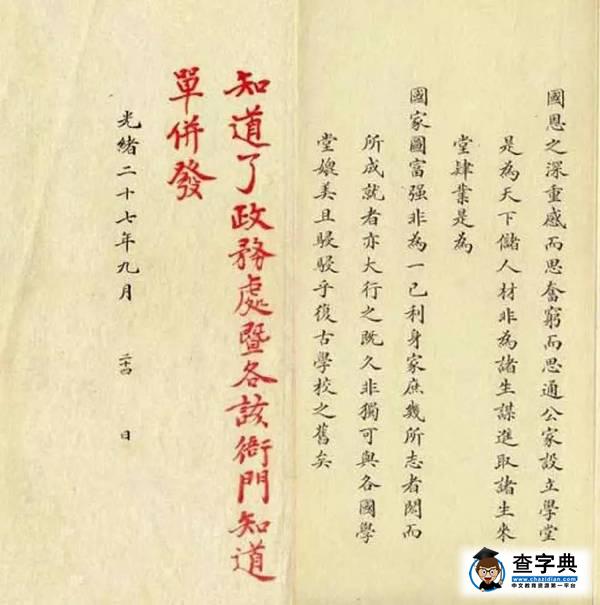 國恩之深重感而思奮窮而思通公家設立學堂
是為天下儲人材非為諸生謀進取諸生來
堂肄業是為
國家圖富强非為一己利身家庶幾所志者閎而
所成就者亦大行之既久非獨可與各國學
堂媲美且駸駸乎復古學校之舊矣
知道了政務處暨各該衙門知道
單併發
光緒二十七年九月 二十四 日
查字典
www.chazidian.com
中文教育资源第一平台